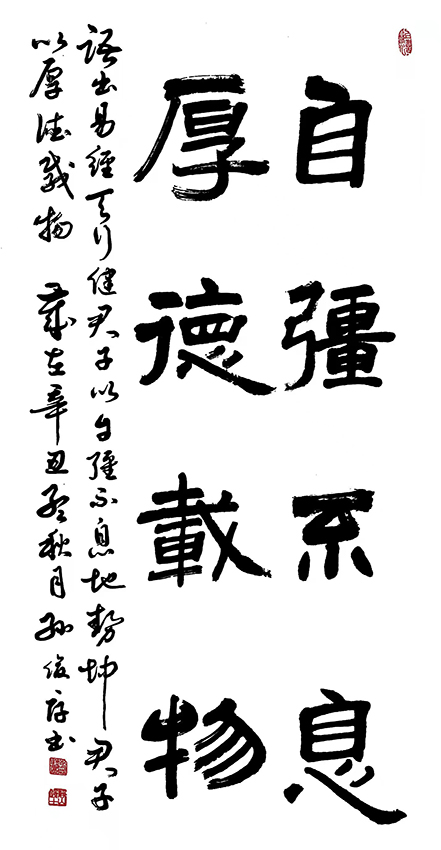 自彊不息
厚德載物
語出易經天行健君子以自彊不息地勢坤君子
以厚德載物 歲在辛丑秋月孫俊書